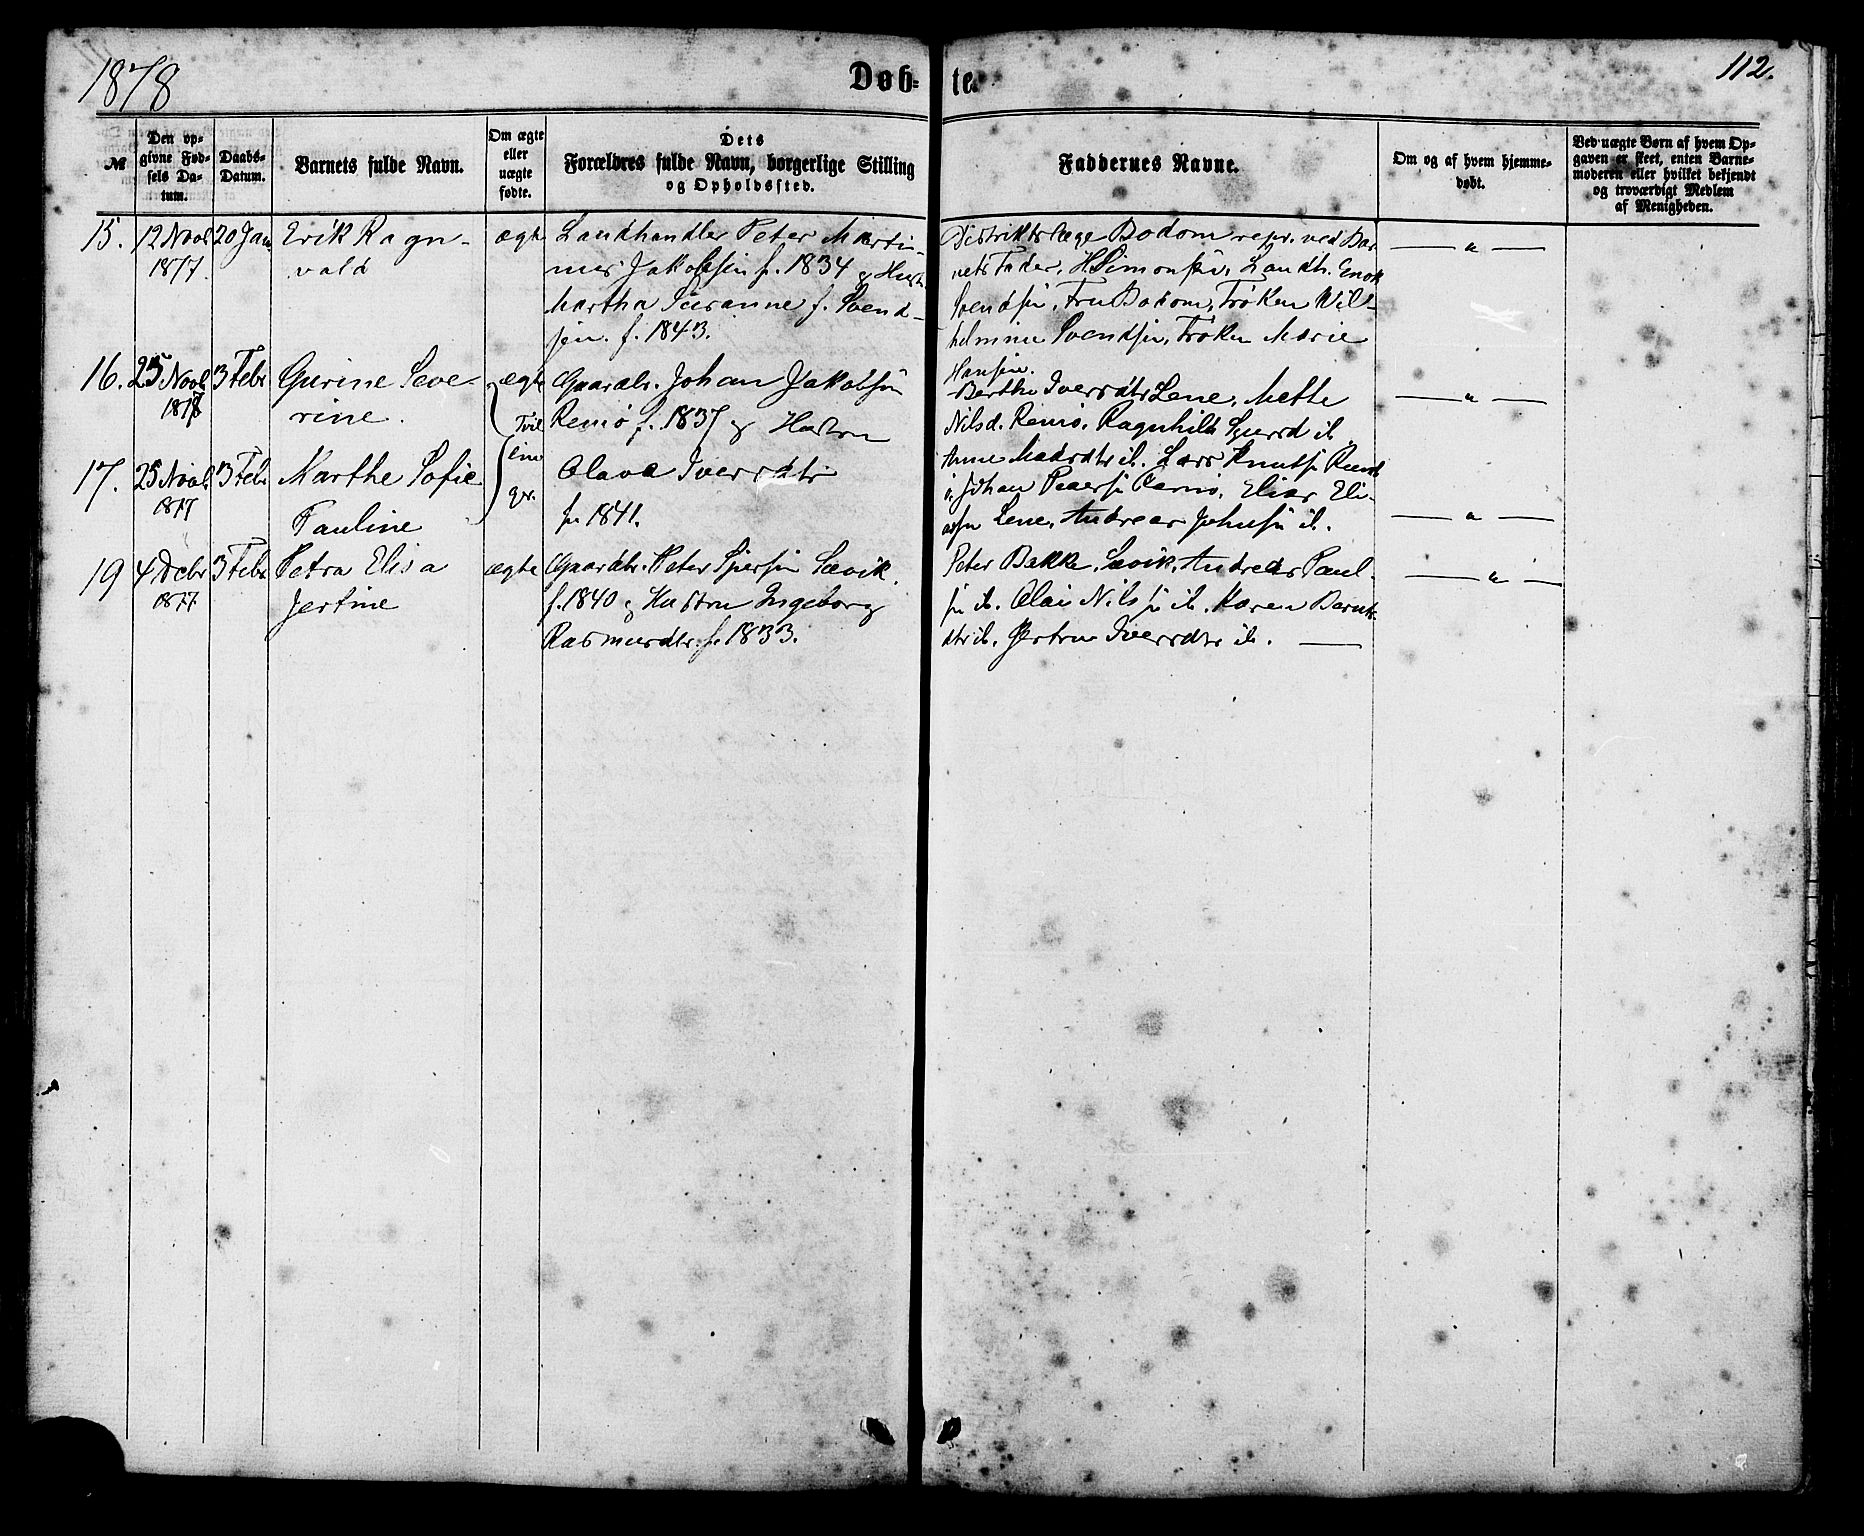 1878
Døb-
te.
112.
№
Den op-
givne Fød-
sels Da-
tum.
Daabs-
Datum.
Barnets fulde Navn.
Om ægte
eller
uægte
fødte.
Dets
Forældres fulde Navn, borgerlige Stilling
og Opholdssted.
Faddernes Navne.
Om og af hvem hjemme-
døbt.
Ved uægte Børn af hvem Op-
gaven er skeet, enten Barne-
moderen eller hvilket bekjendt
og troværdigt Medlem
af Menigheden.
15.
12 Novb
1877.
20 Jan
Erik Ragn-
vald
ægte
Landhandler Peter Marti
nus Jakobsen f. 1834 & Hust.
Martha Susanne f. Svend-
sen. f. 1843.
Distriktslæge Bodom repr. ved Bar
nets Fader, H Simonsen, Landh. Enok
Svendsen, Fru Bodom, Frøken Wil-
helmine Svendsen, Frøken Marie
Hansen.
— " —
16.
25 Novb
1877
3 Febr
Gurine Seve-
rine.
ægte
Tvil
Gaardbr. Johan Jakobsen
Remø f. 1837 & Hustru
Berthe Iversdtr Lene, Mette
Nilsd. Remø, Ragnhild Sjursd ib.
— " —
17.
25 Novb
1877
3 Febr
Marthe Sofie
Pauline
lin
gr.
Olava Iversdtr
f. 1841.
Anne Madsdtr ib. Lars Knutsen
Johan Pedersen Remø, Elias Eli-
assen Lene, Andreas Johnsen ib.
— " —
19
4 Debr
1877
3 Febr
Petra Elisa
Jertine
ægte
Gaardbr. Peter Sjursen Sævik
f. 1840 & Hustru Ingeborg
Rasmusdtr. f. 1833.
Peter Bakke, Sævik, Andreas Paul-
sen ib. Olai Nilssen ib. Karen Bernts
dtr ib. Jertru Iversdtr ib. —
— " —